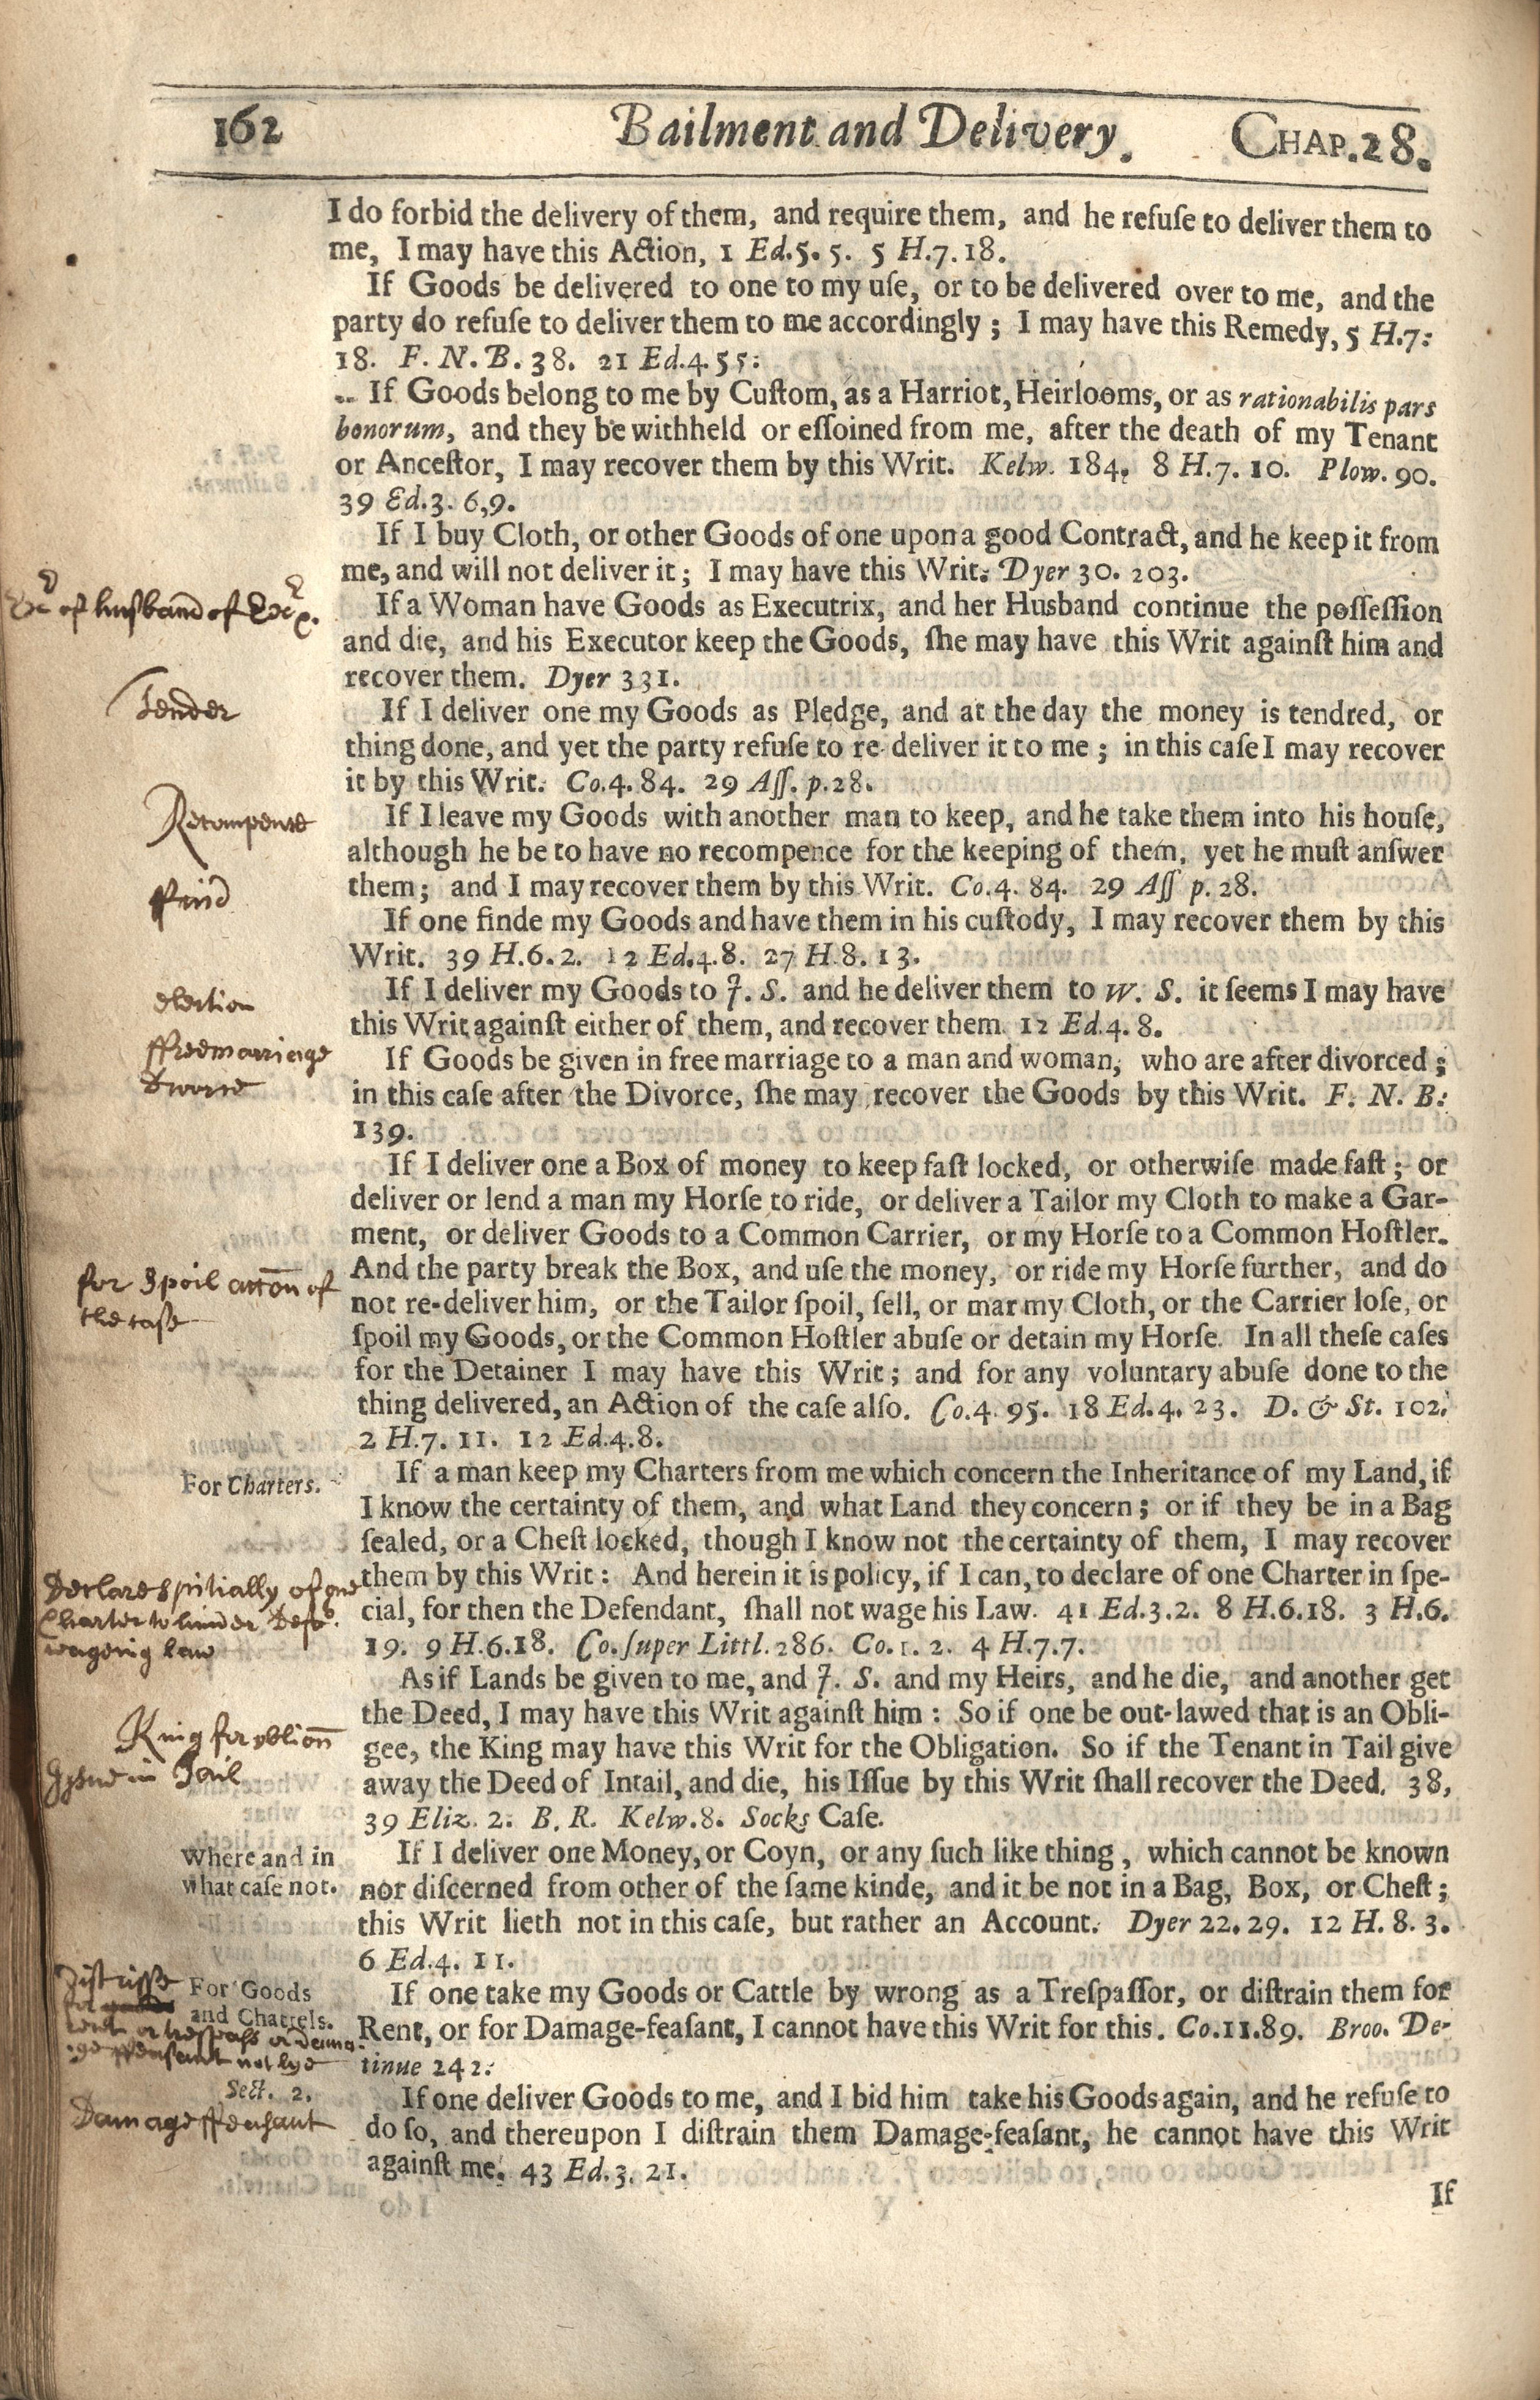 162 Bailment and Delivery. CHAP.28.
I do forbid the delivery of them, and require them, and he refuſe to deliver them to
me, I may have this Action, 1 Ed.5. 5. 5 H.7.18.
If Goods be delivered to one to my uſe, or to be delivered over to me, and the
party do refuſe to deliver them to me accordingly; I may have this Remedy, 5 H.7:
18. F. N. B. 38. 21 Ed.4.55:
If Goods belong to me by Cuſtom, as a Harriot, Heirlooms, or as rationabilis pars
bonorum, and they be withheld or eſſoined from me, after the death of my Tenant
or Anceſtor, I may recover them by this Writ. Kelw. 184, 8 H.7. 10. Plow. 90.
39 Ed.3. 6,9.
If I buy Cloth, or other Goods of one upon a good Contract, and he keep it from
me, and will not deliver it; I may have this Writ. Dyer 30. 203.
of husband of
If a Woman have Goods as Executrix, and her Husband continue the poſſeſſion
and die, and his Executor keep the Goods, ſhe may have this Writ againſt him and
recover them. Dyer 331.
Tender
If I deliver one my Goods as Pledge, and at the day the money is tendred, or
thing done, and yet the party refuſe to re-deliver it to me; in this caſe I may recover
it by this Writ. Co.4. 84. 29 Aſſ. p.28.
Recompence
If I leave my Goods with another man to keep, and he take them into his houſe,
although he be to have no recompence for the keeping of them, yet he muſt anſwer
them; and I may recover them by this Writ. Co.4. 84. 29 Aſſ p. 28.
ffind
If one finde my Goods and have them in his cuſtody, I may recover them by this
Writ. 39 H.6.2. 12 Ed.4.8. 27 H.8.13.
election
If I deliver my Goods to J. S. and he deliver them to W. S. it ſeems I may have
this Writ againſt either of them, and recover them. 12 Ed.4. 8.
ffreemarriage
Divorce
If Goods be given in free marriage to a man and woman, who are after divorced;
in this caſe after the Divorce, ſhe may recover the Goods by this Writ. F. N. B:
139.
If I deliver one a Box of money to keep faſt locked, or otherwiſe made faſt; or
deliver or lend a man my Horſe to ride, or deliver a Tailor my Cloth to make a Gar-
ment, or deliver Goods to a Common Carrier, or my Horſe to a Common Hoſtler.
And the party break the Box, and uſe the money, or ride my Horſe further, and do
for Spoil accōn of
the case
not re-deliver him, or the Tailor ſpoil, ſell, or mar my Cloth, or the Carrier loſe, or
ſpoil my Goods, or the Common Hoſtler abuſe or detain my Horſe. In all theſe caſes
for the Detainer I may have this Writ; and for any voluntary abuſe done to the
thing delivered, an Action of the caſe alſo. Co.4. 95. 18 Ed.4. 23. D. & St. 102.
2 H.7. 11. 12 Ed.4.8.
For Charters.
If a man keep my Charters from me which concern the Inheritance of my Land, if
I know the certainty of them, and what Land they concern; or if they be in a Bag
ſealed, or a Cheſt locked, though I know not the certainty of them, I may recover
Declare spetially of one
Charter to hinder Deft.
wageing law
them by this Writ: And herein it is policy, if I can, to declare of one Charter in ſpe-
cial, for then the Defendant, ſhall not wage his Law. 41 Ed.3.2. 8 H.6.18. 3 H.6.
19. 9 H.6.18. Co. ſuper Littl. 286. Co.1. 2. 4 H.7.7.
As if Lands be given to me, and J. S. and my Heirs, and he die, and another get
the Deed, I may have this Writ againſt him: So if one be out-lawed that is an Obli-
King for oblion
Issue in Tail
gee, the King may have this Writ for the Obligation. So if the Tenant in Tail give
away the Deed of Intail, and die, his Iſſue by this Writ ſhall recover the Deed. 38,
39 Eliz. 2. B. R. Kelw.8. Socks Caſe.
Where and in
what caſe not.
If I deliver one Money, or Coyn, or any ſuch like thing, which cannot be known
nor diſcerned from other of the ſame kinde, and it be not in a Bag, Box, or Cheſt;
this Writ lieth not in this caſe, but rather an Account. Dyer 22. 29. 12 H. 8. 3.
6 Ed.4. 11.
Distresse
For Goods
and Chattels.
rent or trespass or dama
ge ffeasant not lye
Sect. 2.
If one take my Goods or Cattle by wrong as a Treſpaſſor, or diſtrain them for
Rent, or for Damage-feaſant, I cannot have this Writ for this. Co.11.89. Broo. De-
tinue 242:
Damage ffeasant
If one deliver Goods to me, and I bid him take his Goods again, and he refuſe to
do ſo, and thereupon I diſtrain them Damage-feaſant, he cannot have this Writ
againſt me. 43 Ed.3. 21.
If